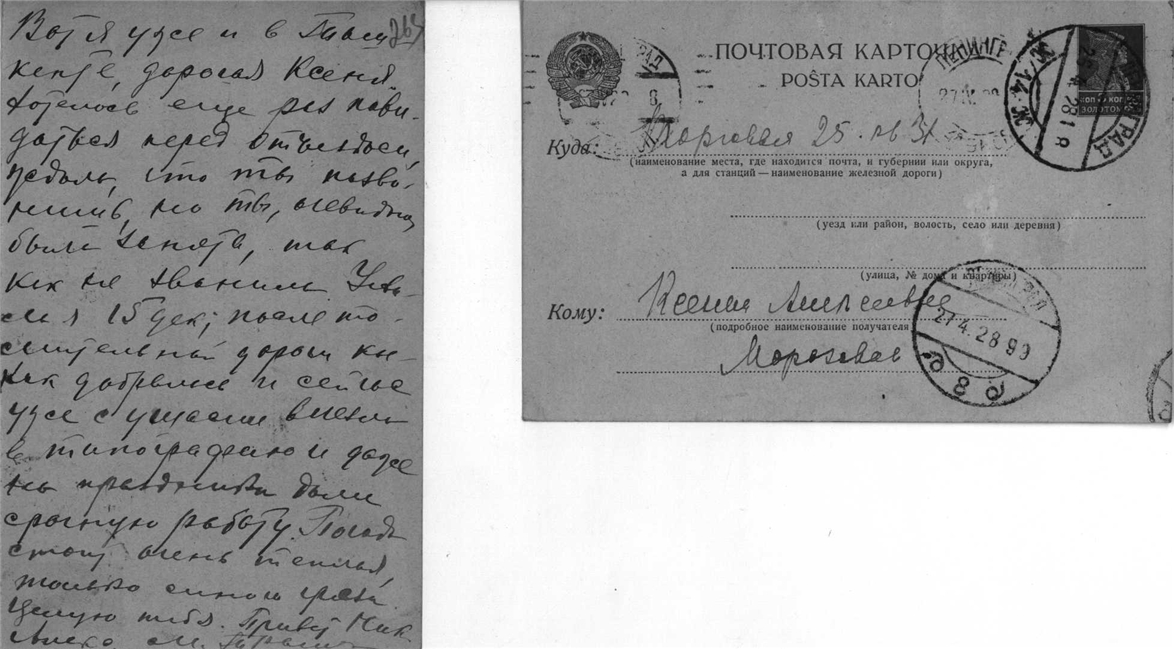 Вот я уже и в Таш 267
кенте, дорогая Ксения.
Хотелось еще раз пови-
даться перед отъездом,
ждала, что ты позво-
нишь, но ты, очевидно,
была занята, так
как не звонила
м я 15 дек; после то-
мительной дороги ко-
как добрались и сейчас
уже с ушами влезли
в типографию и даже
на праздники дали
срочную работу. Погода
стоит очень теплая,
только много грязи.
Целую тебя. Привет Ник
ПОЧТОВАЯ КАРТОЧКА
POŜTA KARTO
ЛЕНИНГРАД
27.IV.28
28.4.28 18
ЛЕНИНГРАД
КОПЕЕК
ЗОЛОТОМ
Куда: Торговая 25. кв 31
(наименование места, где находится почта, и губернии или округа,
а для станций — наименование железной дороги)
(уезд или район, волость, село или деревня)
(улица, № дома и квартиры)
Кому: Ксении Алексеевне
(подробное наименование получателя
Морозовой
27.4.28 90